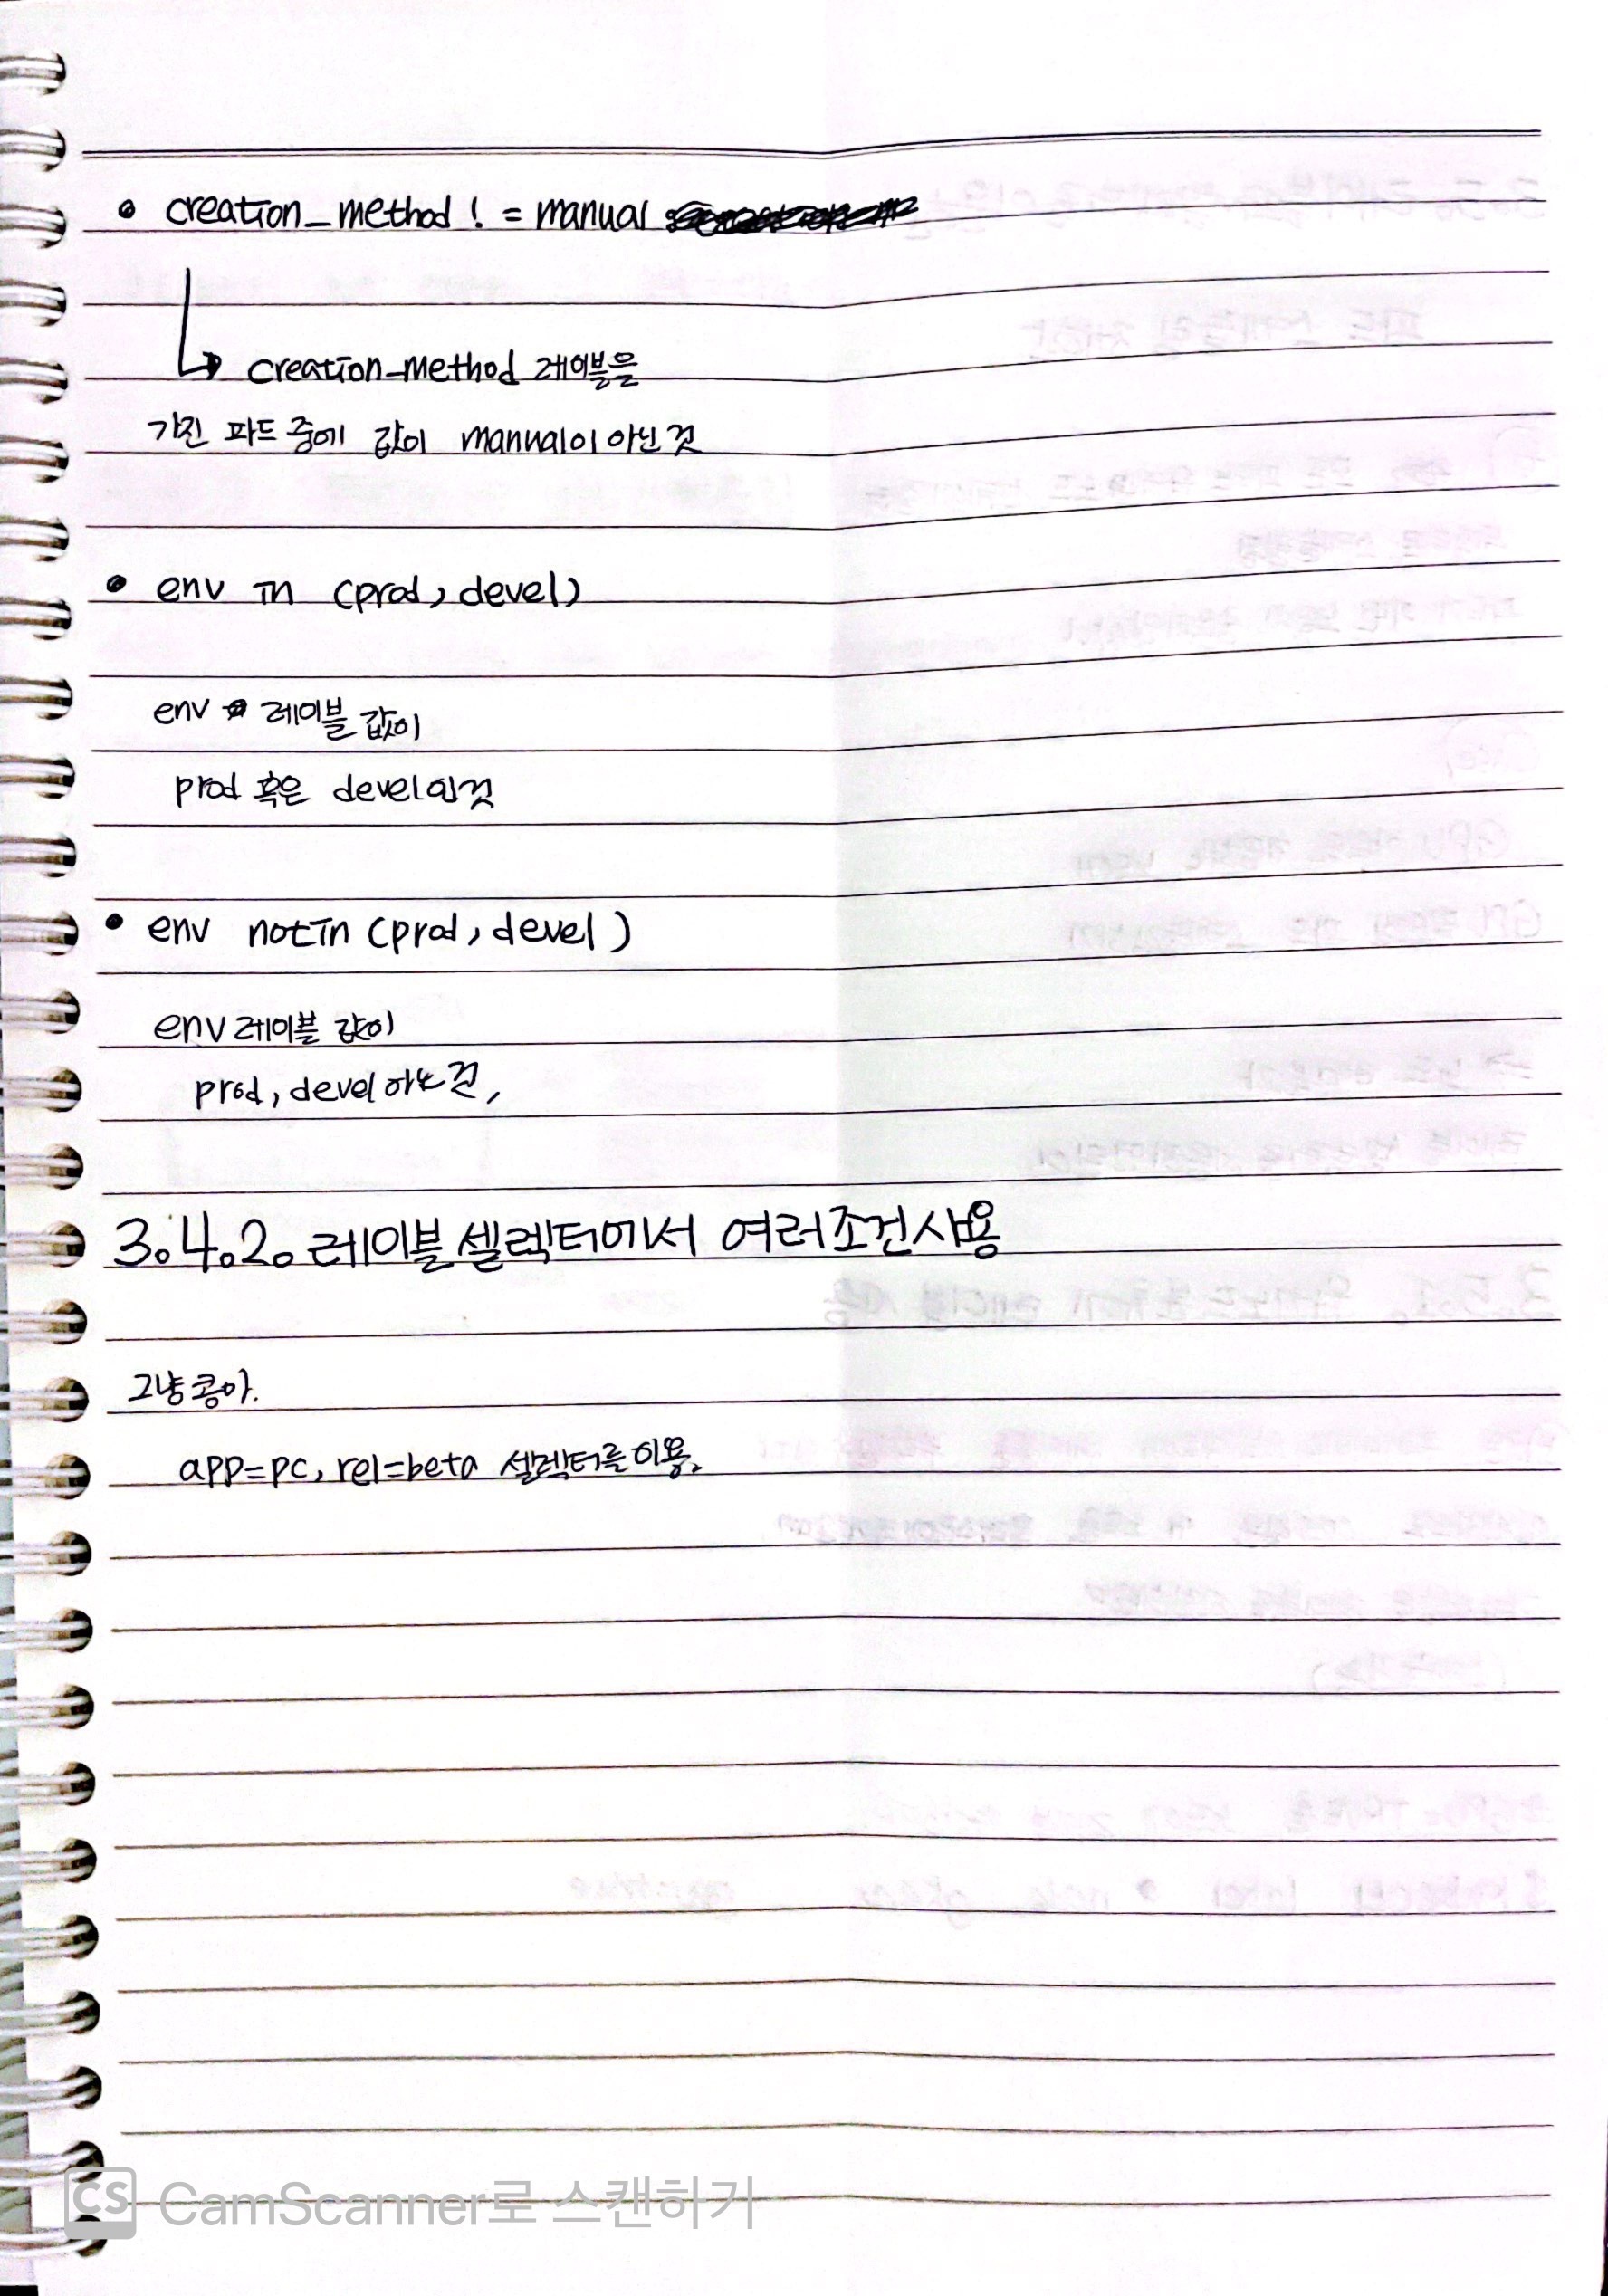 • creation_method ! = manual
↳ creation_method 레이블을
가진 파드 중에 값이 manual이 아닌 것
• env in (prod, devel)
env 레이블 값이
prod 혹은 devel인것
• env notin (prod, devel)
env 레이블 값이
prod, devel 아닌 것,
3.4.2. 레이블 셀렉터에서 여러조건사용
그냥 콤마.
app=pc, rel=beta 셀렉터를 이용.
CS CamScanner로 스캔하기